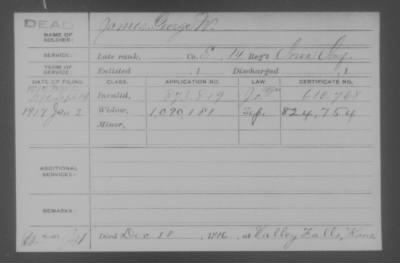 DEAD
NAME OF SOLDIER: James, George W.
SERVICE: Late rank, Co. E, 14 Reg't Iowa Inf.
TERM OF SERVICE: Enlisted , 1 Discharged , 1
DATE OF FILING. CLASS. APPLICATION NO. LAW. CERTIFICATE NO.
Invalid, 873,819 610,768
1917 Jan 2 Widow, 1,090,181 824,754
Minor,
ADDITIONAL SERVICES:
REMARKS:
Died Dec 18, 1916, at Valley Falls, Kans